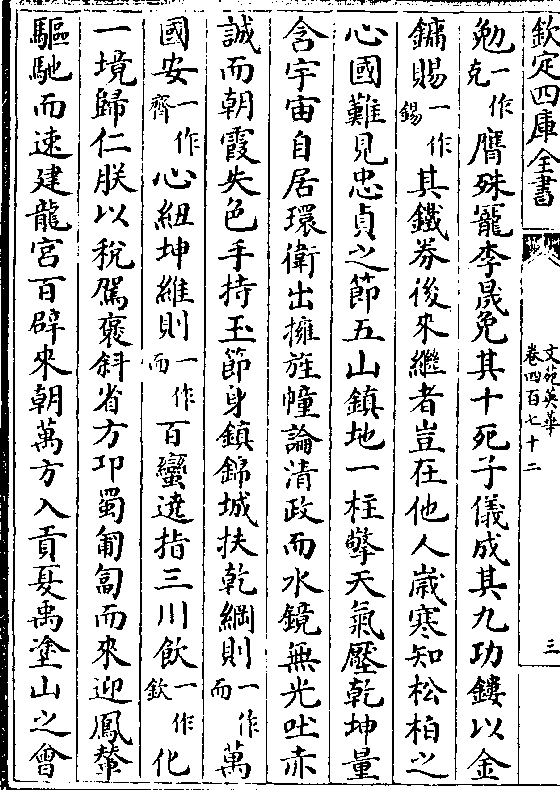 欽定四庫全書
文苑英華
卷四百七十二
三
勉一作克膺殊寵李晟免其十死子儀成其九功鏤以金
鏞賜一作錫其鐵券後來繼者豈在他人歲寒知松柏之
心國難見忠貞之節五山鎮地一柱擎天氣壓乾坤量
含宇宙自居環衛出擁旌幢論清政而水鏡無光吐赤
誠而朝霞失色手持玉節身鎮錦城扶乾綱則一作而萬
國安一作齊心紐坤維則一作而百蠻遶指三川飲一作欽化
一境歸仁朕以稅駕褒斜省方邛蜀匍匐而來迎鳳輦
驅馳而速建龍宮百辟來朝萬方入貢夏禹塗山之會